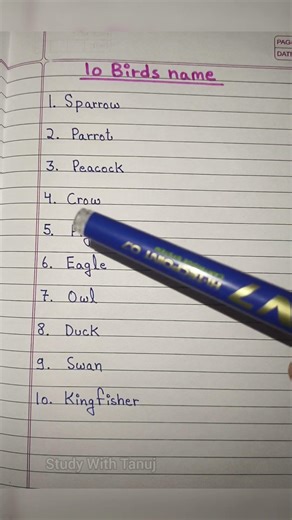 PAG
DATE
10 Birds name
1. Sparrow
2. Parrot
3. Peacock
4. Crow
5.
6. Eagle
7. Owl
8. Duck
9. Swan
10. Kingfisher
Study With Tanuj